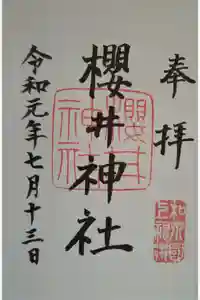 奉拝
櫻井神社
令和元年七月十三日
櫻井神社